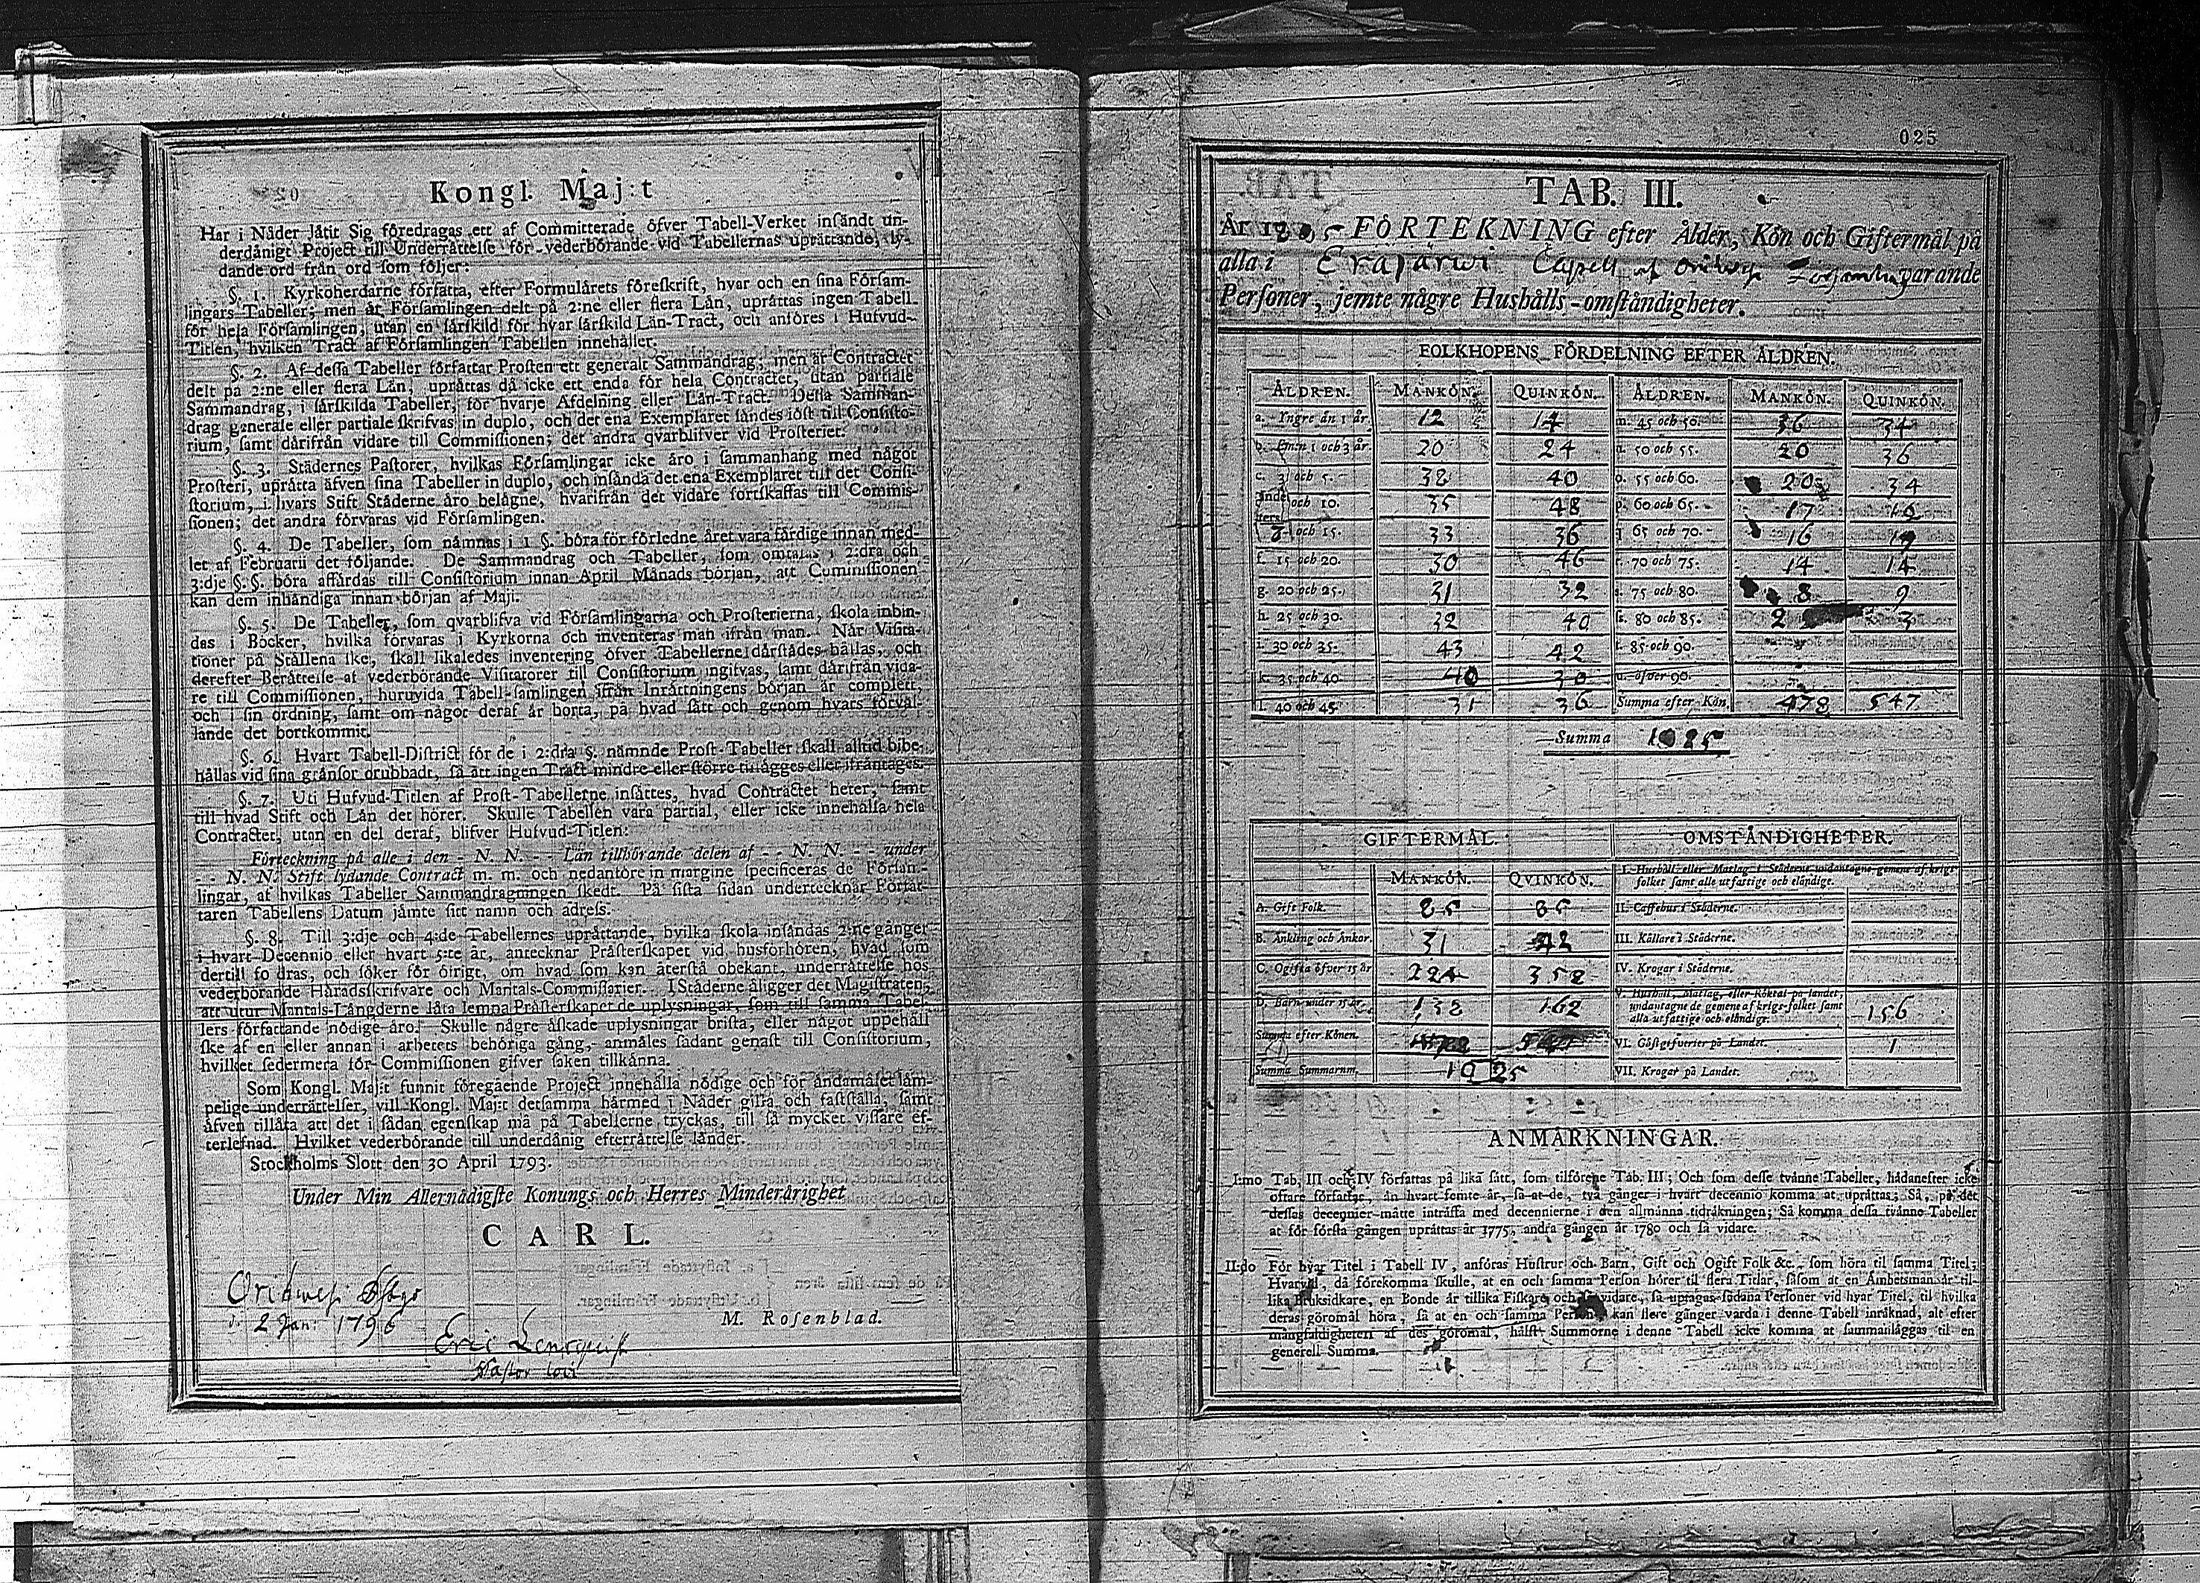 Kongl. Maj:t
Har i Nåder låtit Sig föredragas ett af Committerade öfver Tabell-Verket insändt un-
derdånigt Project till Underrättelse för vederbörande vid Tabellernas uprättande, ly-
dande ord från ord som följer:
§. 1. Kyrkoherdarne författa, efter Formulärets föreskrift, hvar och en sina Försam-
lingars Tabeller; men är Församlingen delt på 2:ne eller flera Län, uprättas ingen Tabell
för hela Församlingen, utan en särskild för hvar särskild Län-Tract, och anföres i Hufvud-
Titlen, hvilken Tract af Församlingen Tabellen innehåller.
§. 2. Af dessa Tabeller författar Prosten ett generalt Sammandrag; men är Contractet
delt på 2:ne eller flera Län, uprättas då icke ett enda för hela Contractet, utan partiale
Sammandrag, i särskilda Tabeller, för hvarje Afdelning eller Län-Tract. Dessa Samman-
drag generale eller partiale skrifvas in duplo, och der ena Exemplaret sändes löst till Consisto-
rium, samt därifrån vidare till Commissionen; det andra qvarblifver vid Prosteriet.
§. 3. Städernes Pastorer, hvilkas Församlingar icke äro i sammanhang med något
Prosteri, uprätta äfven sina Tabeller in duplo, och insända det ena Exemplaret till det Consi-
storium, i hvars Stift Städerne äro belägne, hvarifrån det vidare fortskaffas till Commis-
sionen; det andra förvaras vid Församlingen.
§. 4. De Tabeller, som nämnas i 1 §. böra för förledne året vara färdige innan med-
let af Februarii det följande. De Sammandrag och Tabeller, som omtalas i 2:dra och
3:dje §.§. böra affärdas till Consistorium innan April Månads början, att Commissionen
kan dem inhändiga innan början af Maji.
§. 5. De Tabeller, som qvarblifva vid Församlingarna och Prosterierna, skola inbin-
das i Böcker, hvilka förvaras i Kyrkorna och inventeras man ifrån man. När Visita-
tioner på Ställena ske, skall likaledes inventering öfver Tabellerne därstådes hållas, och
derefter Berättelse af vederbörande Visitatorer till Consistorium ingifvas, samt därifrån vida-
re till Commissionen, huruvida Tabell-samlingen ifrån Inrättningens början är complett,
och i sin ordning, samt om något deraf är borta, på hvad sätt och genom hvars förvål-
lande det bortkommit.
§. 6. Hvart Tabell-District för de i 2:dra §. nämnde Prost-Tabeller skall alltid bibe-
hållas vid sina gränsor orubbadt, så att ingen Tract mindre eller större tillägges eller ifråntages.
§. 7. Uti Hufvud-Titlen af Prost-Tabellerne insättes, hvad Contractet heter, samt
till hvad Stift och Län det hörer. Skulle Tabellen vara partial, eller icke innehålla hela
Contractet, utan en del deraf, blifver Hufvud-Titlen:
Förteckning på alle i den - N. N. - - Län tillhörande delen af - - N. N. - - under
- - N. N. Stift lydande Contract m. m. och nedanföre in margine specificeras de Försam-
lingar, af hvilkas Tabeller Sammandragningen skedt. På sista sidan undertecknar Förfat-
taren Tabellens Datum jämte sitt namn och adress.
§. 8. Till 3:dje och 4:de Tabellernes uprättande, hvilka skola insändas 2:ne gånger
i hvart Decennio eller hvart 5:te år, antecknar Prästerskapet vid husförhören, hvad som
dertill fodras, och söker för öfrigt, om hvad som kan återstå obekant, underrättelse hos
vederbörande Häradsskrifvare och Mantals-Commissarier. I Städerne åligger det Magistraten,
att utur Mantals-Längderne låta lemna Prästerskapet de uplysningar, som till samma Tabel-
lers författande nödige äro. Skulle någre äskade uplysningar brista, eller något uppehåll
ske af en eller annan i arbetets behöriga gång, anmäles sådant genast till Consistorium,
hvilket sedermera för Commissionen gifver saken tillkänna.
Som Kongl. Maj:t funnit föregående Project innehålla nödige och för ändamålet läm-
pelige underrättelser, vill Kongl. Maj:t detsamma härmed i Nåder gilla och fastställa, samt
äfven tillåta att det i sådan egenskap må på Tabellerne tryckas, till så mycket vissare ef-
terlefnad. Hvilket vederbörande till underdånig efterrättelse länder.
Stockholms Slott den 30 April 1793.
Under Min Allernådigste Konungs och Herres Minderårighet
CARL.
M. Rosenblad.
d. 2 Jan: 1796
Eric Lencqvist
Pastor loci
025
TAB. III.
År 1805 FÖRTEKNING efter Ålder, Kön och Giftermål på
alla i Erajärwi Capell af Församling varande
Personer, jemte någre Hushålls-omständigheter.
FOLKHOPENS FÖRDELNING EFTER ÅLDREN.
ÅLDREN. MANKÖN. QUINKÖN. ÅLDREN. MANKÖN. QUINKÖN.
a. Yngre än 1 år. 12 14 m. 45 och 50. 36 34
b. Emn 1 och 3 år. 20 24 n. 50 och 55. 20 36
c. 3 och 5. 38 40 o. 55 och 60. 20 34
och 10. 35 48 p. 60 och 65. 17
och 15. 33 36 65 och 70. 16 19
f. 15 och 20. 30 46 r. 70 och 75. 14 14
g. 20 och 25. 31 32 s. 75 och 80. 8 9
h. 25 och 30. 32 40 80 och 85. 2 3
i. 30 och 35. 43 42 t. 85 och 90.
k. 35 och 40 40 30 u. öfver 90.
l. 40 och 45. 31 36 Summa efter Kön. 478 547
Summa 1025
GIFTERMÅL. OMSTÄNDIGHETER.
MANKÖN. QVINKÖN. I. Hushåll eller Matlag i Städerne undantagne gemene af krigs-
folket samt alle utfattige och eländige.
A. Gift Folk. 85 85 II. Caffehus i Städerne.
B. Änkling och Änkor. 31 42 III. Källare i Städerne.
C. Ogifta öfver 15 år 224 358 IV. Krogar i Städerne.
D. Barn under 15 år. 138 162 V. Hushåll, Matlag, eller Röktal på landet,
undantagne de gemene af krigs-folket samt
alla utfattige och eländige. 156
Summa efter Könen. 547 VI. Gästgifverier på Landet. 1
Summa Summarum. 1025 VII. Krogar på Landet.
ANMÄRKNINGAR.
I:mo Tab. III och IV författas på lika sätt, som tilförene Tab. III; Och som desse tvänne Tabeller, hädanefter icke
oftare författas, än hvart femte år, så at de, två gånger i hvart decennio komma at uprättas; Så, på det
dessas decennier måtte inträffa med decennierne i den allmänna tidräkningen; Så komma dessa tvänne Tabeller
at för första gången uprättas år 1775, andra gången år 1780 och så vidare.
II:do För hvar Titel i Tabell IV, anföras Hustrur och Barn, Gift och Ogift Folk &c. som höra til samma Titel;
Hvarvid, då förekomma skulle, at en och samma Person hörer til flera Titlar, såsom at en Ämbetsman är til-
lika Bruksidkare, en Bonde är tillika Fiskare och så vidare, så uptagas sådana Personer vid hvar Titel, til hvilka
deras göromål höra, så at en och samma Person kan flere gånger varda i denne Tabell inräknad, alt efter
mångfaldigheten af des göromål, hälst Summorne i denne Tabell icke komma at sammanläggas til en
generell Summa.